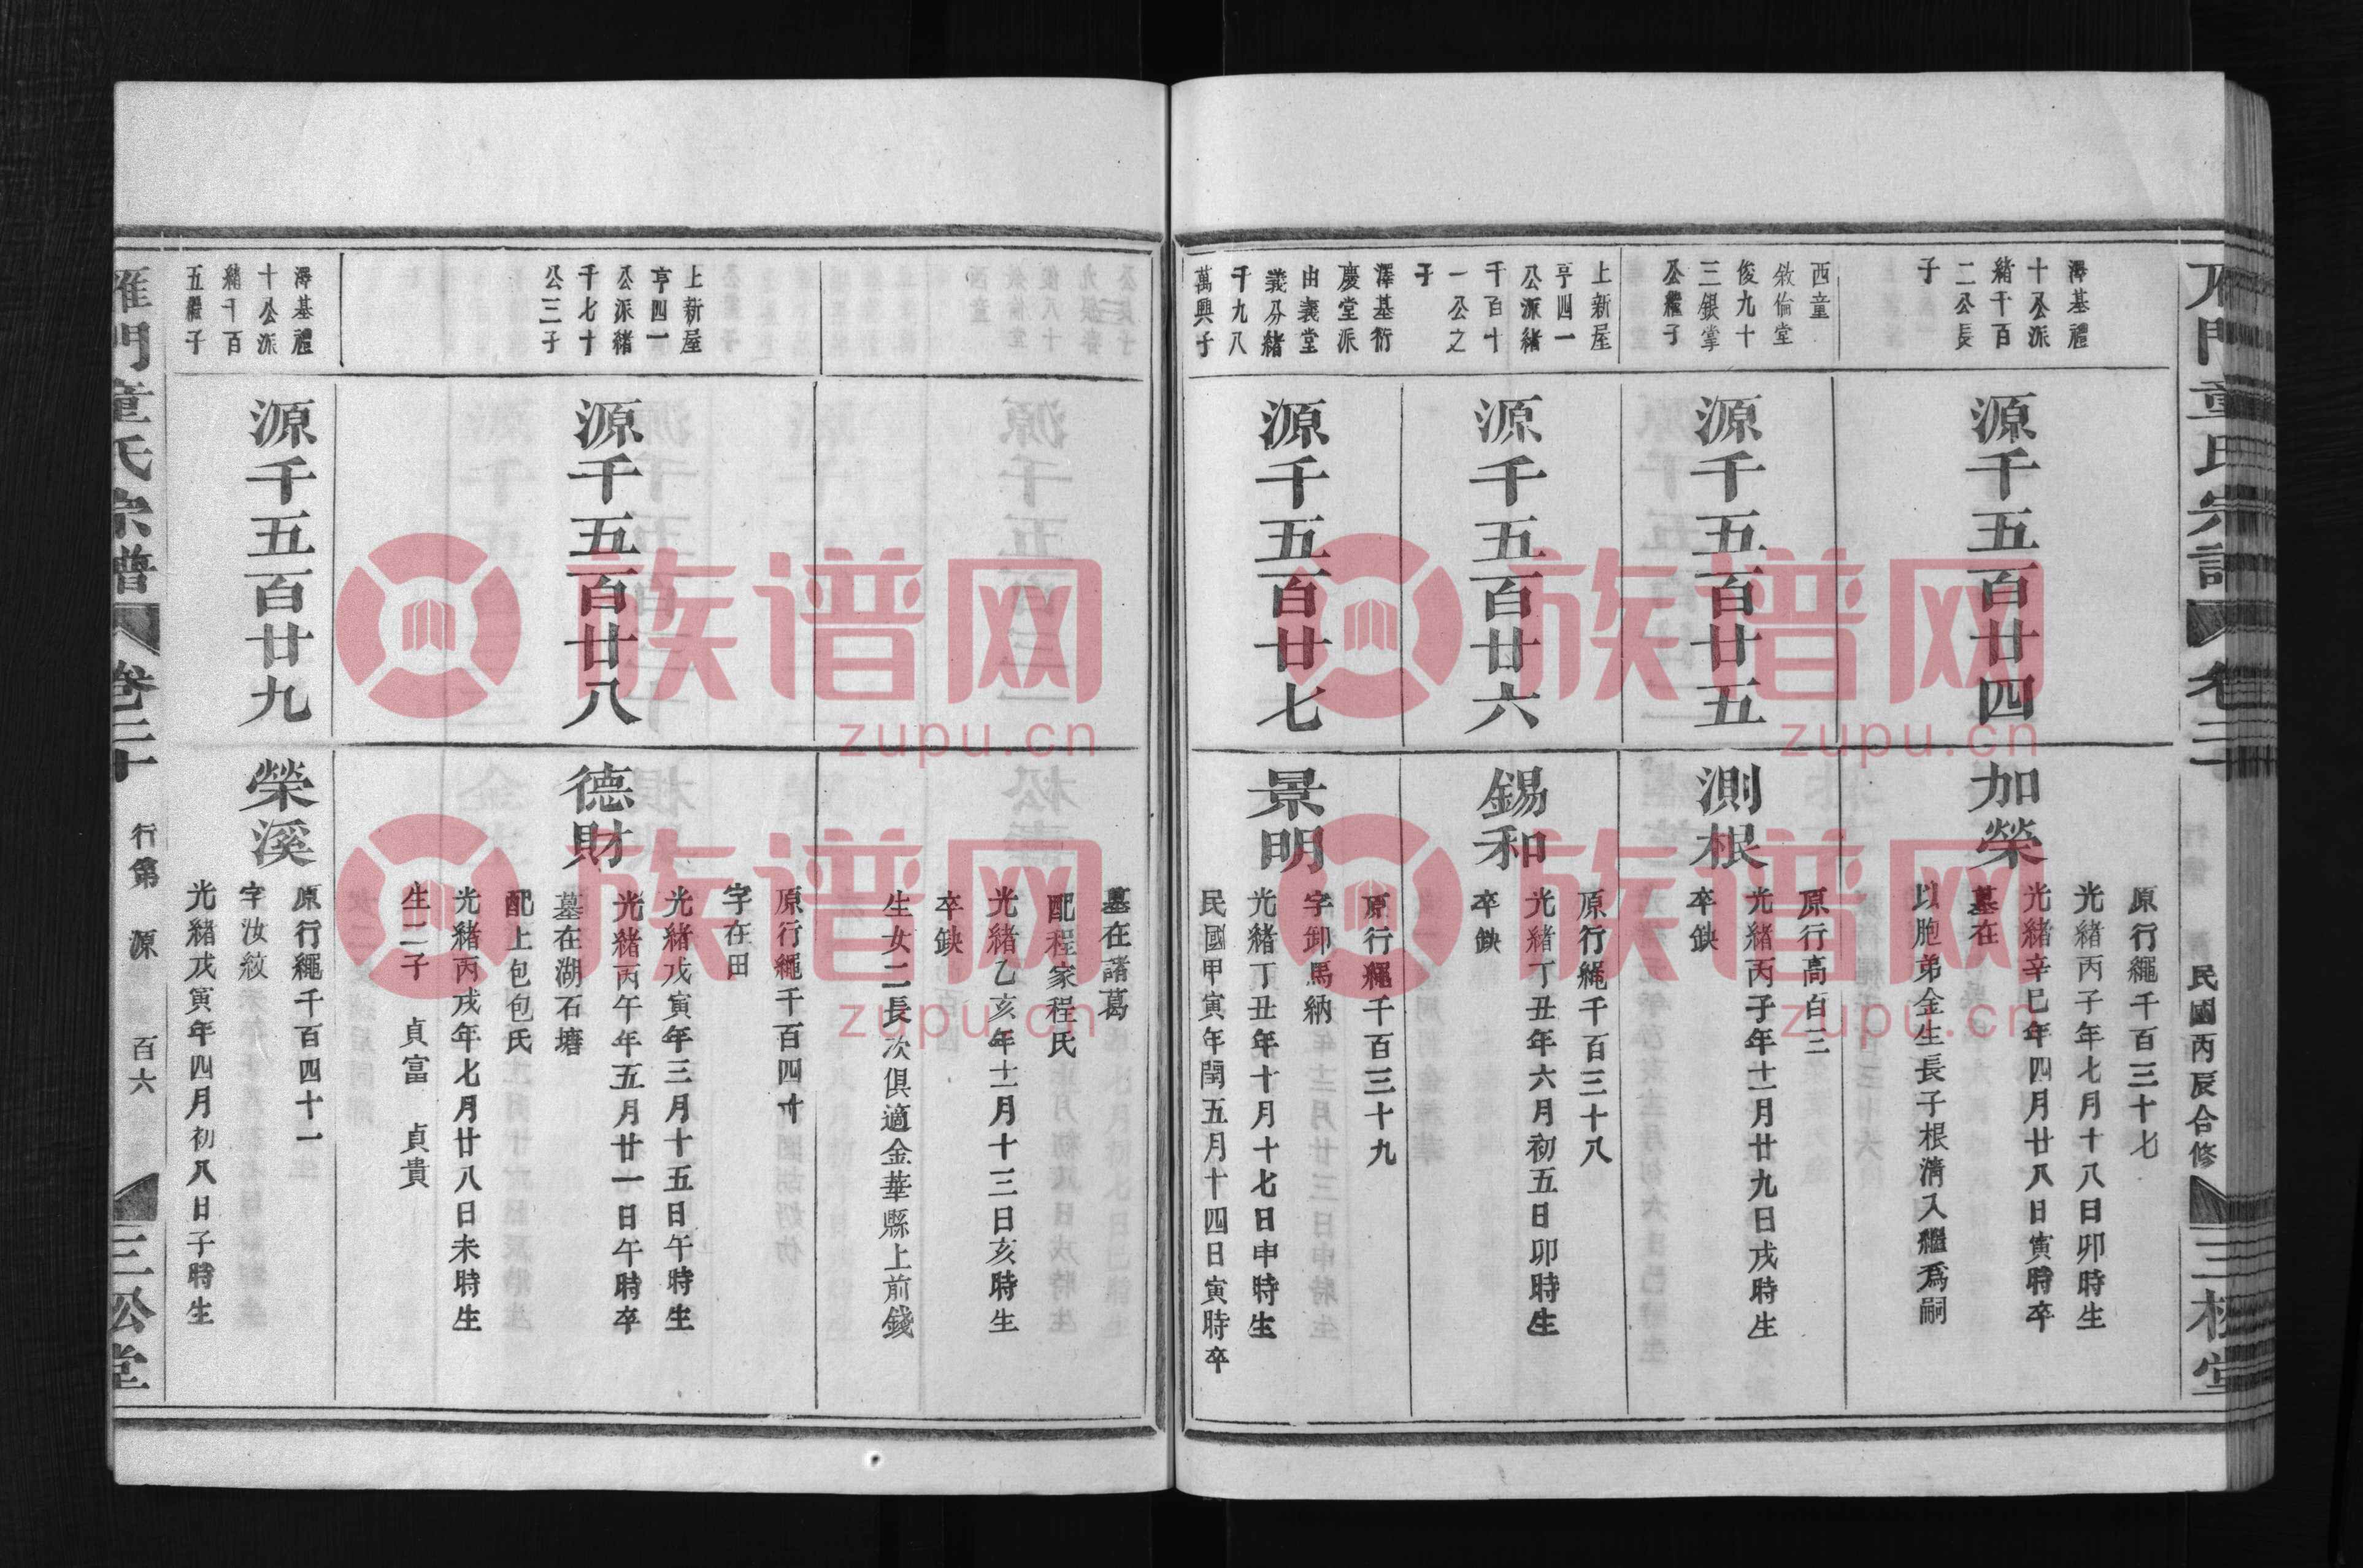 雁門童氏宗譜
卷二十
民國丙辰合修
三松堂
澤基禮
十公派
緒千百
二公長
子
源千五百廿四
加榮
原行繩千百三十七
光緒丙子年七月十八日卯時生
光緒辛巳年四月廿八日寅時卒
墓在
以胞弟金生長子根濟入繼爲嗣
西童
敘倫堂
俊九十
三銀掌
公繼子
源千五百廿五
測根
原行高百三
光緒丙子年十一月廿九日戌時生
卒缺
上新屋
亨四一
公派緒
千百十
一公之
子
源千五百廿六
錫和
原行繩千百三十八
光緒丁丑年六月初五日卯時生
卒缺
澤基衍
慶堂派
由義堂
義分緒
千九八
萬興子
源千五百廿七
景明
原行繩千百三十九
字卸馬納
光緒丁丑年十月十七日申時生
民國甲寅年閏五月十四日寅時卒
墓在諸葛
配程家程氏
光緒乙亥年十一月十三日亥時生
卒缺
生女二長次俱適金華縣上前錢
上新屋
亨四一
公派緒
千七十
公三子
源千五百廿八
德財
原行繩千百四十
字在田
光緒戊寅年三月十五日午時生
光緒丙午年五月廿一日午時卒
墓在湖石塘
配上包包氏
光緒丙戌年七月廿八日未時生
生二子 貞富 貞貴
澤基禮
十公派
緒千百
五繼子
源千五百廿九
榮溪
原行繩千百四十一
字汝紋
光緒戊寅年四月初八日子時生
雁門童氏宗譜
卷二十
行第 源 百六
三松堂
族谱网
zupu.cn
族谱网
zupu.cn
族谱网
zupu.cn
族谱网
zupu.cn